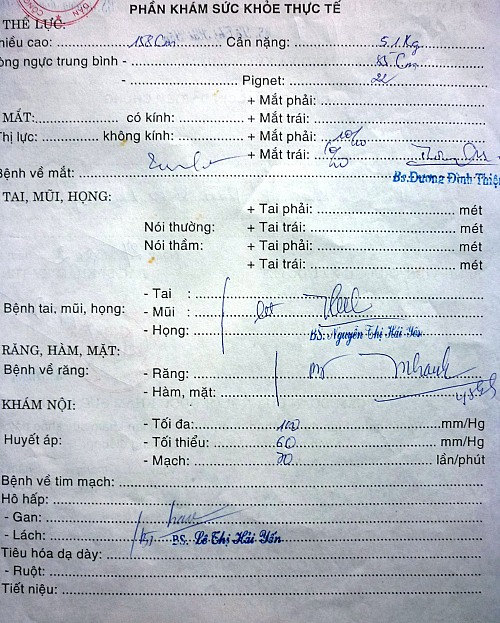 PHẦN KHÁM SỨC KHỎE THỰC TẾ
THỂ LỰC:
hiều cao: 158 Cm Cần nặng: 51 Kg
òng ngực trung bình - 85 Cm
- Pignet: 22
+ Mắt phải:
MẮT: có kính: + Mắt trái:
Thị lực: không kính: + Mắt phải: 10/10
+ Mắt trái: 10/10
Bệnh về mắt:
Bs.Dương Đình Thiệ
TAI, MŨI, HỌNG:
+ Tai phải: mét
Nói thường: + Tai trái: mét
Nói thầm: + Tai phải: mét
+ Tai trái: mét
- Tai :
Bệnh tai, mũi, họng: - Mũi :
- Họng: BS. Nguyễn Thị Hải Yến
RĂNG, HÀM, MẶT:
Bệnh về răng: - Răng:
- Hàm, mặt:
KHÁM NỘI:
- Tối đa: 100 mm/Hg
Huyết áp: - Tối thiểu: 60 mm/Hg
- Mạch: 70 lần/phút
Bệnh về tim mạch:
Hô hấp:
- Gan:
- Lách: BS. Lê Thị Hải Yến
Tiêu hóa dạ dày:
- Ruột:
Tiết niệu: